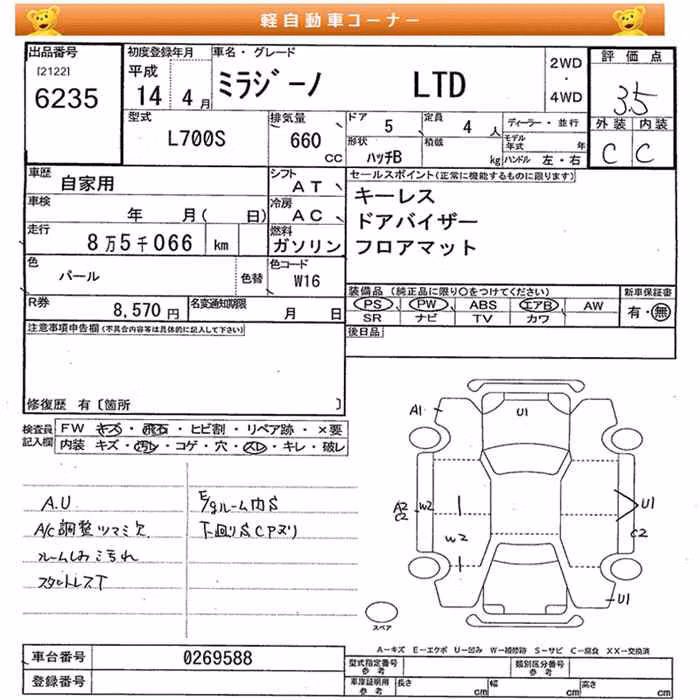 軽自動車コーナー
出品番号
[2122]
6235
初度登録年月
平成
14 4月
車名・グレード
ミラジーノ LTD
2WD
・
4WD
評価点
3.5
外装 内装
C C
型式
L700S
排気量
660
CC
ドア
5
定員
4 人
ディーラー・並行
形状
ハッチB
積載
kg
モデル年式 年
ハンドル 左・右
車歴
自家用
シフト
AT
セールスポイント(正常に機能するものに限ります)
キーレス
ドアバイザー
フロアマット
車検
年 月( 日)
冷房
AC
走行
8万5千066 km
燃料
ガソリン
色
パール
色替
色コード
W16
装備品 (純正品に限り○をつけてください)
PS PW ABS エアB AW
SR ナビ TV カワ
新車保証書
有・無
R券
8,570円
名変通知期限
月 日
後日品
注意事項申告欄(不具合内容等は具体的に記入して下さい)
修復歴 有〔箇所 〕
検査員記入欄
FW キズ・飛石・ヒビ割・リペア跡・×要
内装 キズ・汚レ・コゲ・穴・スレ・キレ・破レ
A.U
A/C調整ツマミ欠
ルームしみこげれ
スタットレスT
E/gルーム内S
下回りS CPヌリ
A1
U1
A2
C2
W2
W2
U1
C2
U1
スペア
A-キズ E-エクボ U-凹み W-補修跡 S-サビ C-腐食 XX-交換済
車台番号
0269588
登録番号
型式指定番号
参考
類別区分番号
参考
車庫証明用
参考
長さ cm
幅 cm
高さ cm